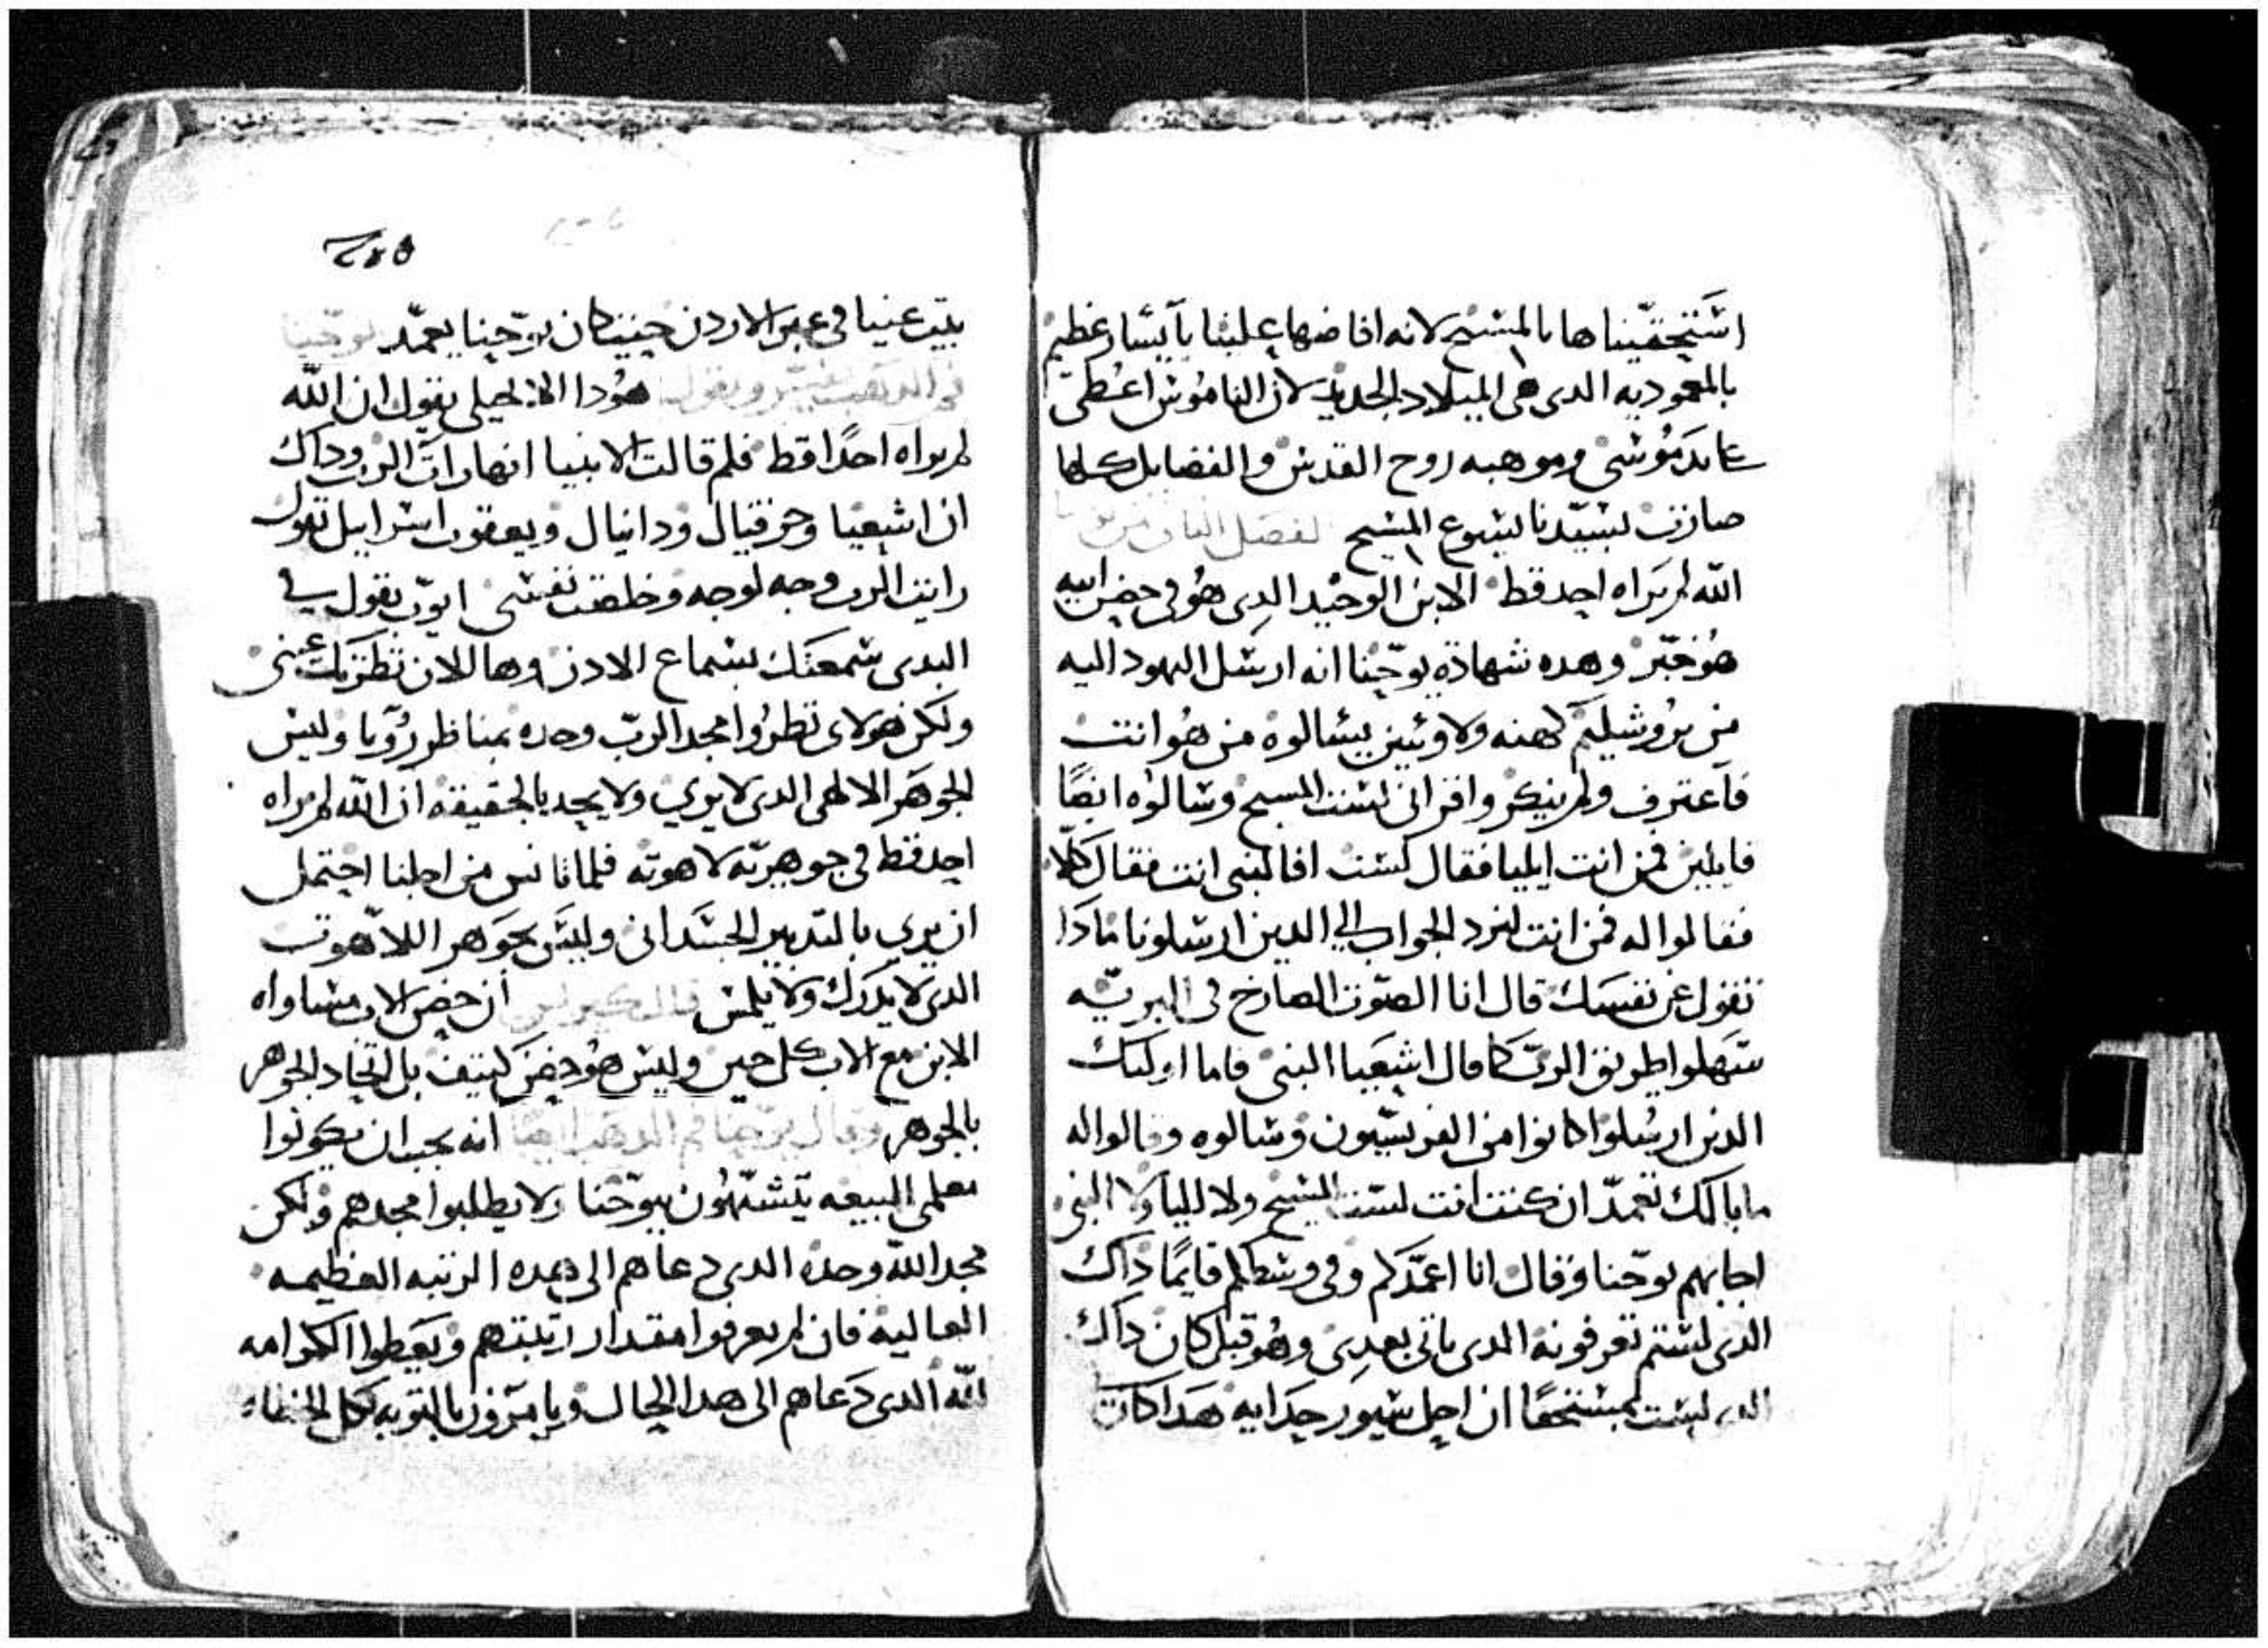 استحقيناها بالمسيح لانه افاضها علينا بآيثار عظيم
بالمعموديه الدى هى الميلاد الجديد لان الناموس اعطى
على يد موسى وموهبه روح القدس والفضايل كلها
صارت لسيدنا يسوع المسيح الفصل الثانى من يوحنا
الله لم يراه احد قط الابن الوحيد الدى هو فى حضن ابيه
هو خبر وهده شهادة يوحنا انه ارسل اليهود اليه
من يروشليم كهنه ولاويين يسالوه من هو انت
فاعترف ولم ينكر واقر انى لست المسيح وسالوه ايضًا
قايلين فمن انت ايليا فقال لست افالنبى انت فقال كلا
فقالوا له فمن انت لنرد الجواب الى الدين ارسلونا مادا
تقول عن نفسك قال انا الصوت الصارخ فى البريه
سهلوا طريق الرب كما قال اشعيا النبى فاما اوليك
الدين ارسلوا كانوا من الفريسيون وسالوه وقالوا له
ما بالك تعمد ان كنت انت لست المسيح ولا ايليا ولا النبى
اجابهم يوحنا وقال انا اعمدكم وفى وسطكم قايمًا داك
الدى لستم تعرفونه الدى ياتى بعدى وهو قبلى كان داك
الدى لست بمستحقًا ان احل سيور حدايه هدا كان
٢٤٥
بيت عنيا فى عبر الاردن حيث كان يوحنا يعمد يوحنا
فم الدهب يفسر ويقول هودا الانجيلى يقول ان الله
لم يراه احدًا قط فلم قالت الانبيا انها رات الرب وداك
ان اشعيا وحزقيال ودانيال ويعقوب اسراييل تقول
رايت الرب وجه لوجه وخلصت نفسى ايوب يقول فى
البدى سمعتك بسماع الادن وها الان نظرتك عينى
ولكن هولاى نظروا مجد الرب وحده بمناظر رؤيا وليس
الجوهر الالهى الدى لا يرى ولا يحد بالحقيقه ان الله لم يراه
احد قط فى جوهريته لاهوته فلما تانس من اجلنا احتمل
ان يرى بالتدبير الجسدانى وليس بجوهر اللاهوت
الدى لا يدرك ولا يلمس قال كيرلس ان حضن الاب مساواه
الابن مع الاب كل حين وليس هو حضن كثيف بل اتحاد الجوهر
بالجوهر وقال يوحنا فم الدهب ايضًا انه يجب ان يكونوا
معلمى البيعه يتشبهون بيوحنا ولا يطلبوا مجدهم ولكن
مجد الله وحده الدى دعاهم الى هده الرتبه العظيمه
العاليه فان لم يعرفوا مقدار رتبتهم ويعطوا الكرامه
لله الدى دعاهم الى هدا الحال ويامرون بالتوبه لكل الخطاه